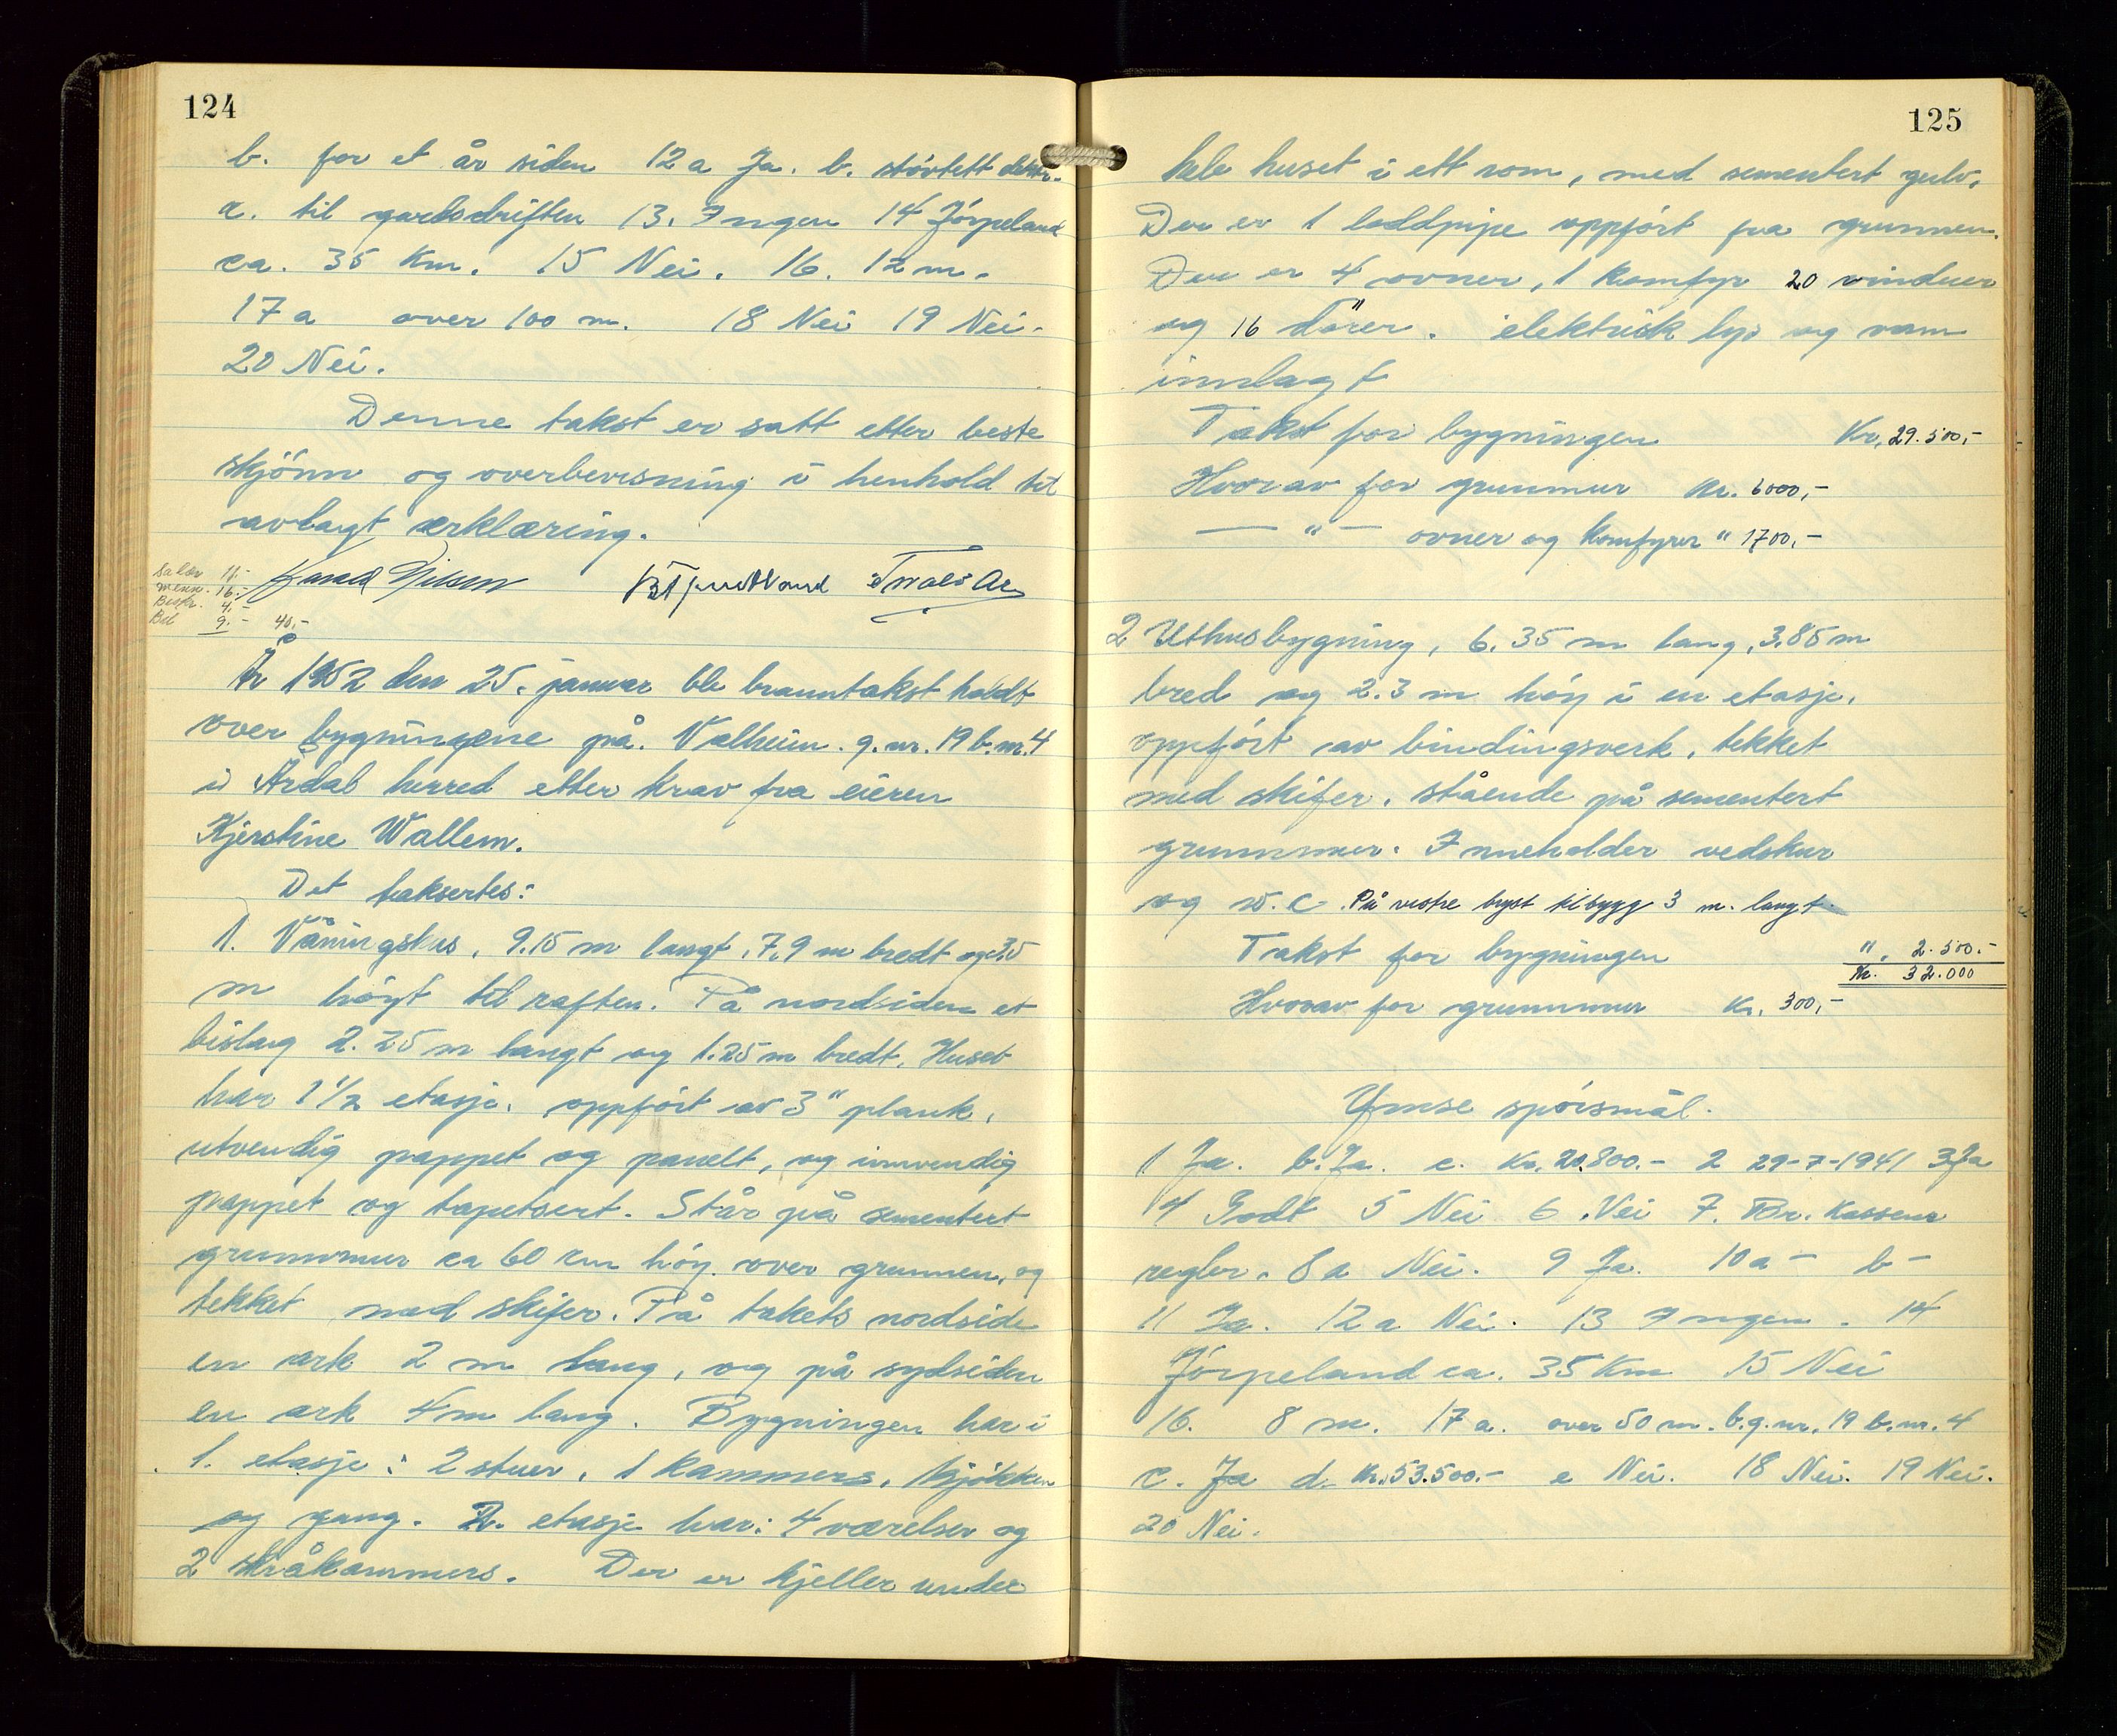 124
b. for et år siden 12 a Ja. b. støvtett elektr.
c. til gardsdriften 13. Ingen 14 Jørpeland
ca. 35 Km. 15 Nei. 16. 12 m.
17 a over 100 m. 18 Nei 19 Nei.
20 Nei.
Denne takst er satt etter beste
skjønn og overbevisning i henhold til
avlagt erklæring.
Salær 11.-
16.-
Beskr. 4.-
Bil 9.- 40,-
År 1952 den 25. januar ble branntakst holdt
over bygningene på. Valheim. g.nr. 19 b.nr. 4
i Årdal herred etter krav fra eieren
Kjerstine Wallem.
Det taksertes:
1. Våningshus, 9.15 m langt, 7,9 m bredt og 3.5
m høyt til raften. På nordsiden et
bislag 2.25 m langt og 1.25 m bredt. Huset
har 1 1/2 etasje. oppført av 3" plank,
utvendig pappet og panelt, og innvendig
pappet og tapetsert. Står på sementert
grunnmur ca 60 cm høy over grunnen, og
tekket med skifer. På takets nordside
en ark 2 m lang, og på sydsiden
en ark 4 m lang. Bygningen har i
1. etasje: 2 stuer, 1 kammers, kjøkken
og gang. 2. etasje har: 4 værelser og
2 skråkammers. Der er kjeller under
125
hele huset i ett rom, med sementert gulv.
Der er 1 loddpipe oppført fra grunnen.
Der er 4 ovner, 1 komfyr 20 vinduer
og 16 dører. elektrisk lys og vann
innlagt
Takst for bygningen Kr. 29.500,-
Hvorav for grunnmur Kr. 6000,-
— " — ovner og komfyrer " 1700,-
2 Uthusbygning, 6.35 m lang, 3.85 m
bred og 2.3 m høy i en etasje.
oppført av bindingsverk, tekket
med skifer, stående på sementert
grunnmur. Inneholder vedskur
og w.c. På vestre tilbygg 3 m. langt.
Takst for bygningen ". 2.500.-
Kr. 32.000
Hvorav for grunnmur Kr. 300,-
Ymse spørsmål.
1 Ja. b. Ja. c. Kr. 20.800.- 2 29-7-1941 3 Ja
4 Godt 5 Nei 6 Nei 7. Br. Kassens
regler. 8 a Nei. 9 Ja. 10 a - b -
11 Ja. 12 a Nei. 13 Ingen. 14
Jørpeland ca. 35 Km 15 Nei
16. 8 m. 17 a. over 50 m. b. g.nr. 19 b.nr. 4
c. Ja d. Kr. 53.500.- e Nei. 18 Nei. 19 Nei.
20 Nei.